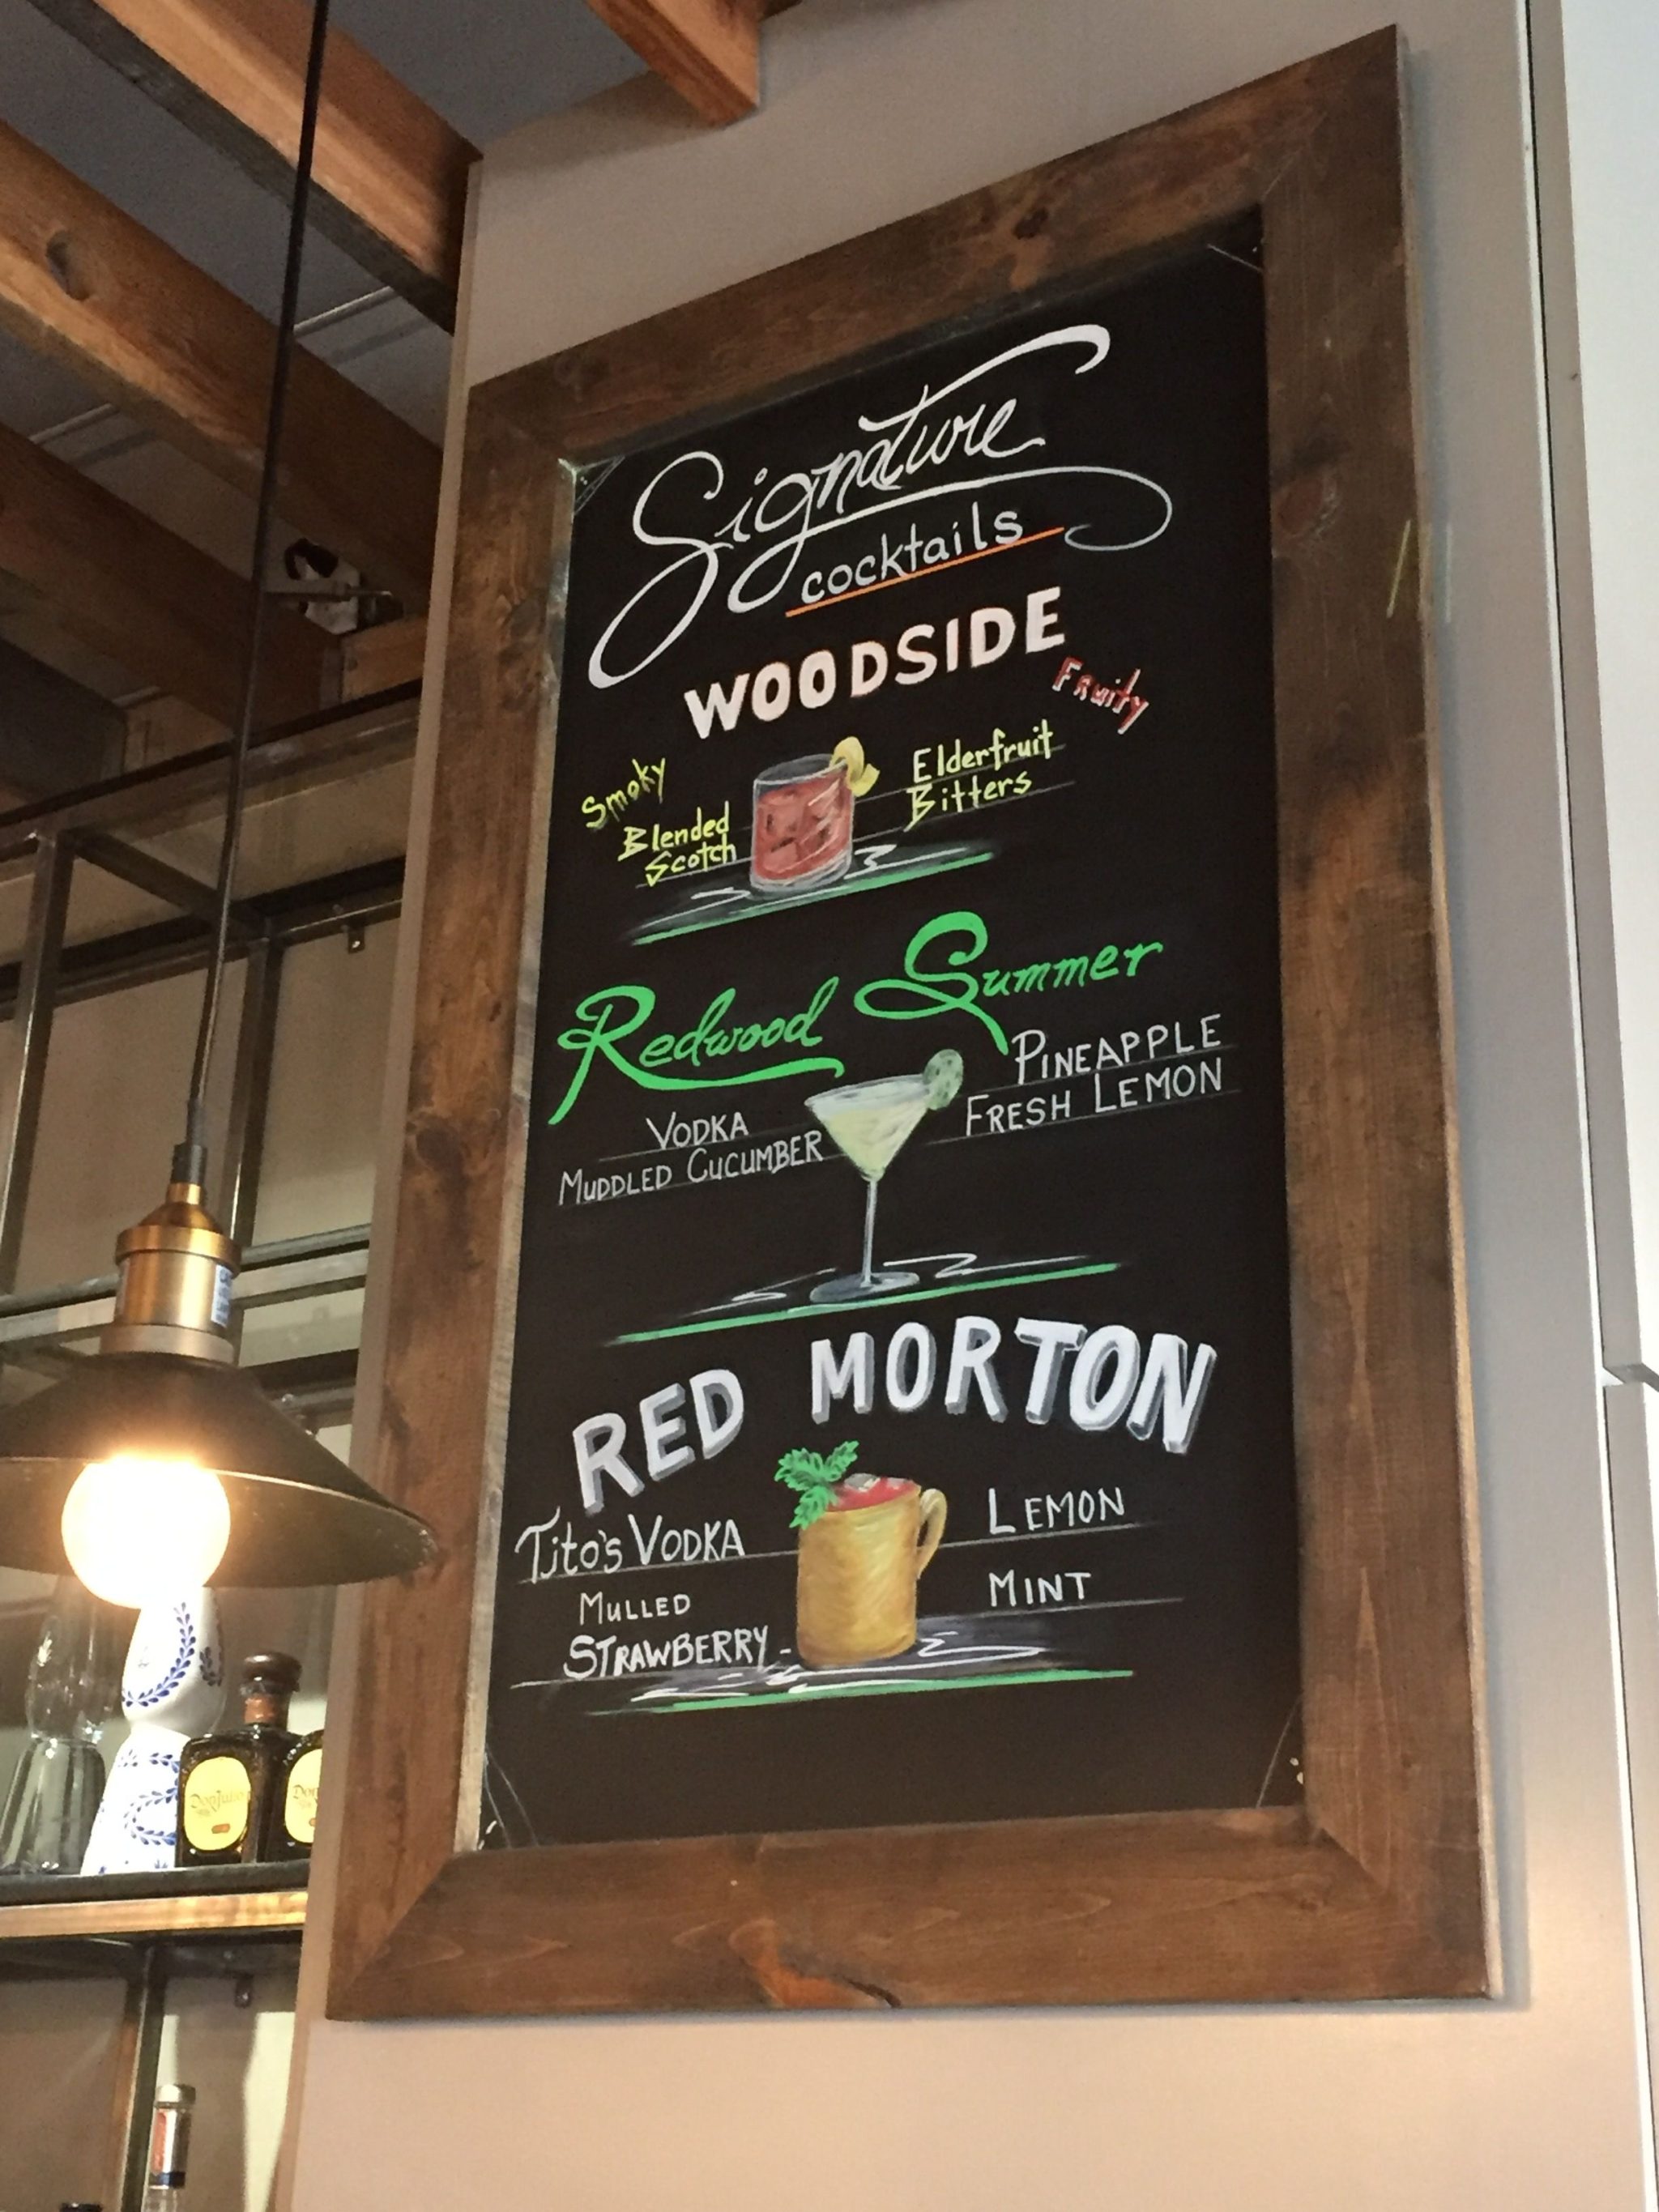 Signature
cocktails
WOODSIDE
Fruity
Smoky
Blended
Scotch
Elderfruit
Bitters
Redwood Summer
VODKA
MUDDLED CUCUMBER
PINEAPPLE
FRESH LEMON
RED MORTON
Tito's VODKA
MULLED
STRAWBERRY
LEMON
MINT
Don Julio
Don